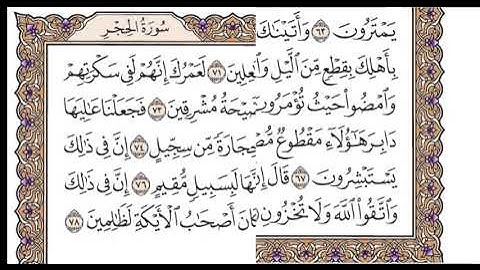 سُورَةُ الحِجْرِ
يَمْتَرُونَ ٦٣ وَأَتَيْنَٰكَ
بِأَهْلِكَ بِقِطْعٍ مِّنَ ٱلَّيْلِ لَعَمْرُكَ إِنَّهُمْ لَفِى سَكْرَتِهِمْ ٧١
وَٱمْضُوا۟ حَيْثُ تُؤْمَرُونَ مُشْرِقِينَ ٧٣ فَجَعَلْنَا عَٰلِيَهَا
دَابِرَ هَٰٓؤُلَآءِ مَقْطُوعٌ مِّن سِجِّيلٍ ٧٤ إِنَّ فِى ذَٰلِكَ
يَسْتَبْشِرُونَ ٦٧ قَالَ إِنَّهَا لَبِسَبِيلٍ مُّقِيمٍ ٧٦ إِنَّ فِى ذَٰلِكَ
وَٱتَّقُوا۟ ٱللَّهَ وَلَا تُخْزُونِ أَصْحَٰبُ ٱلْأَيْكَةِ لَظَٰلِمِينَ ٧٨